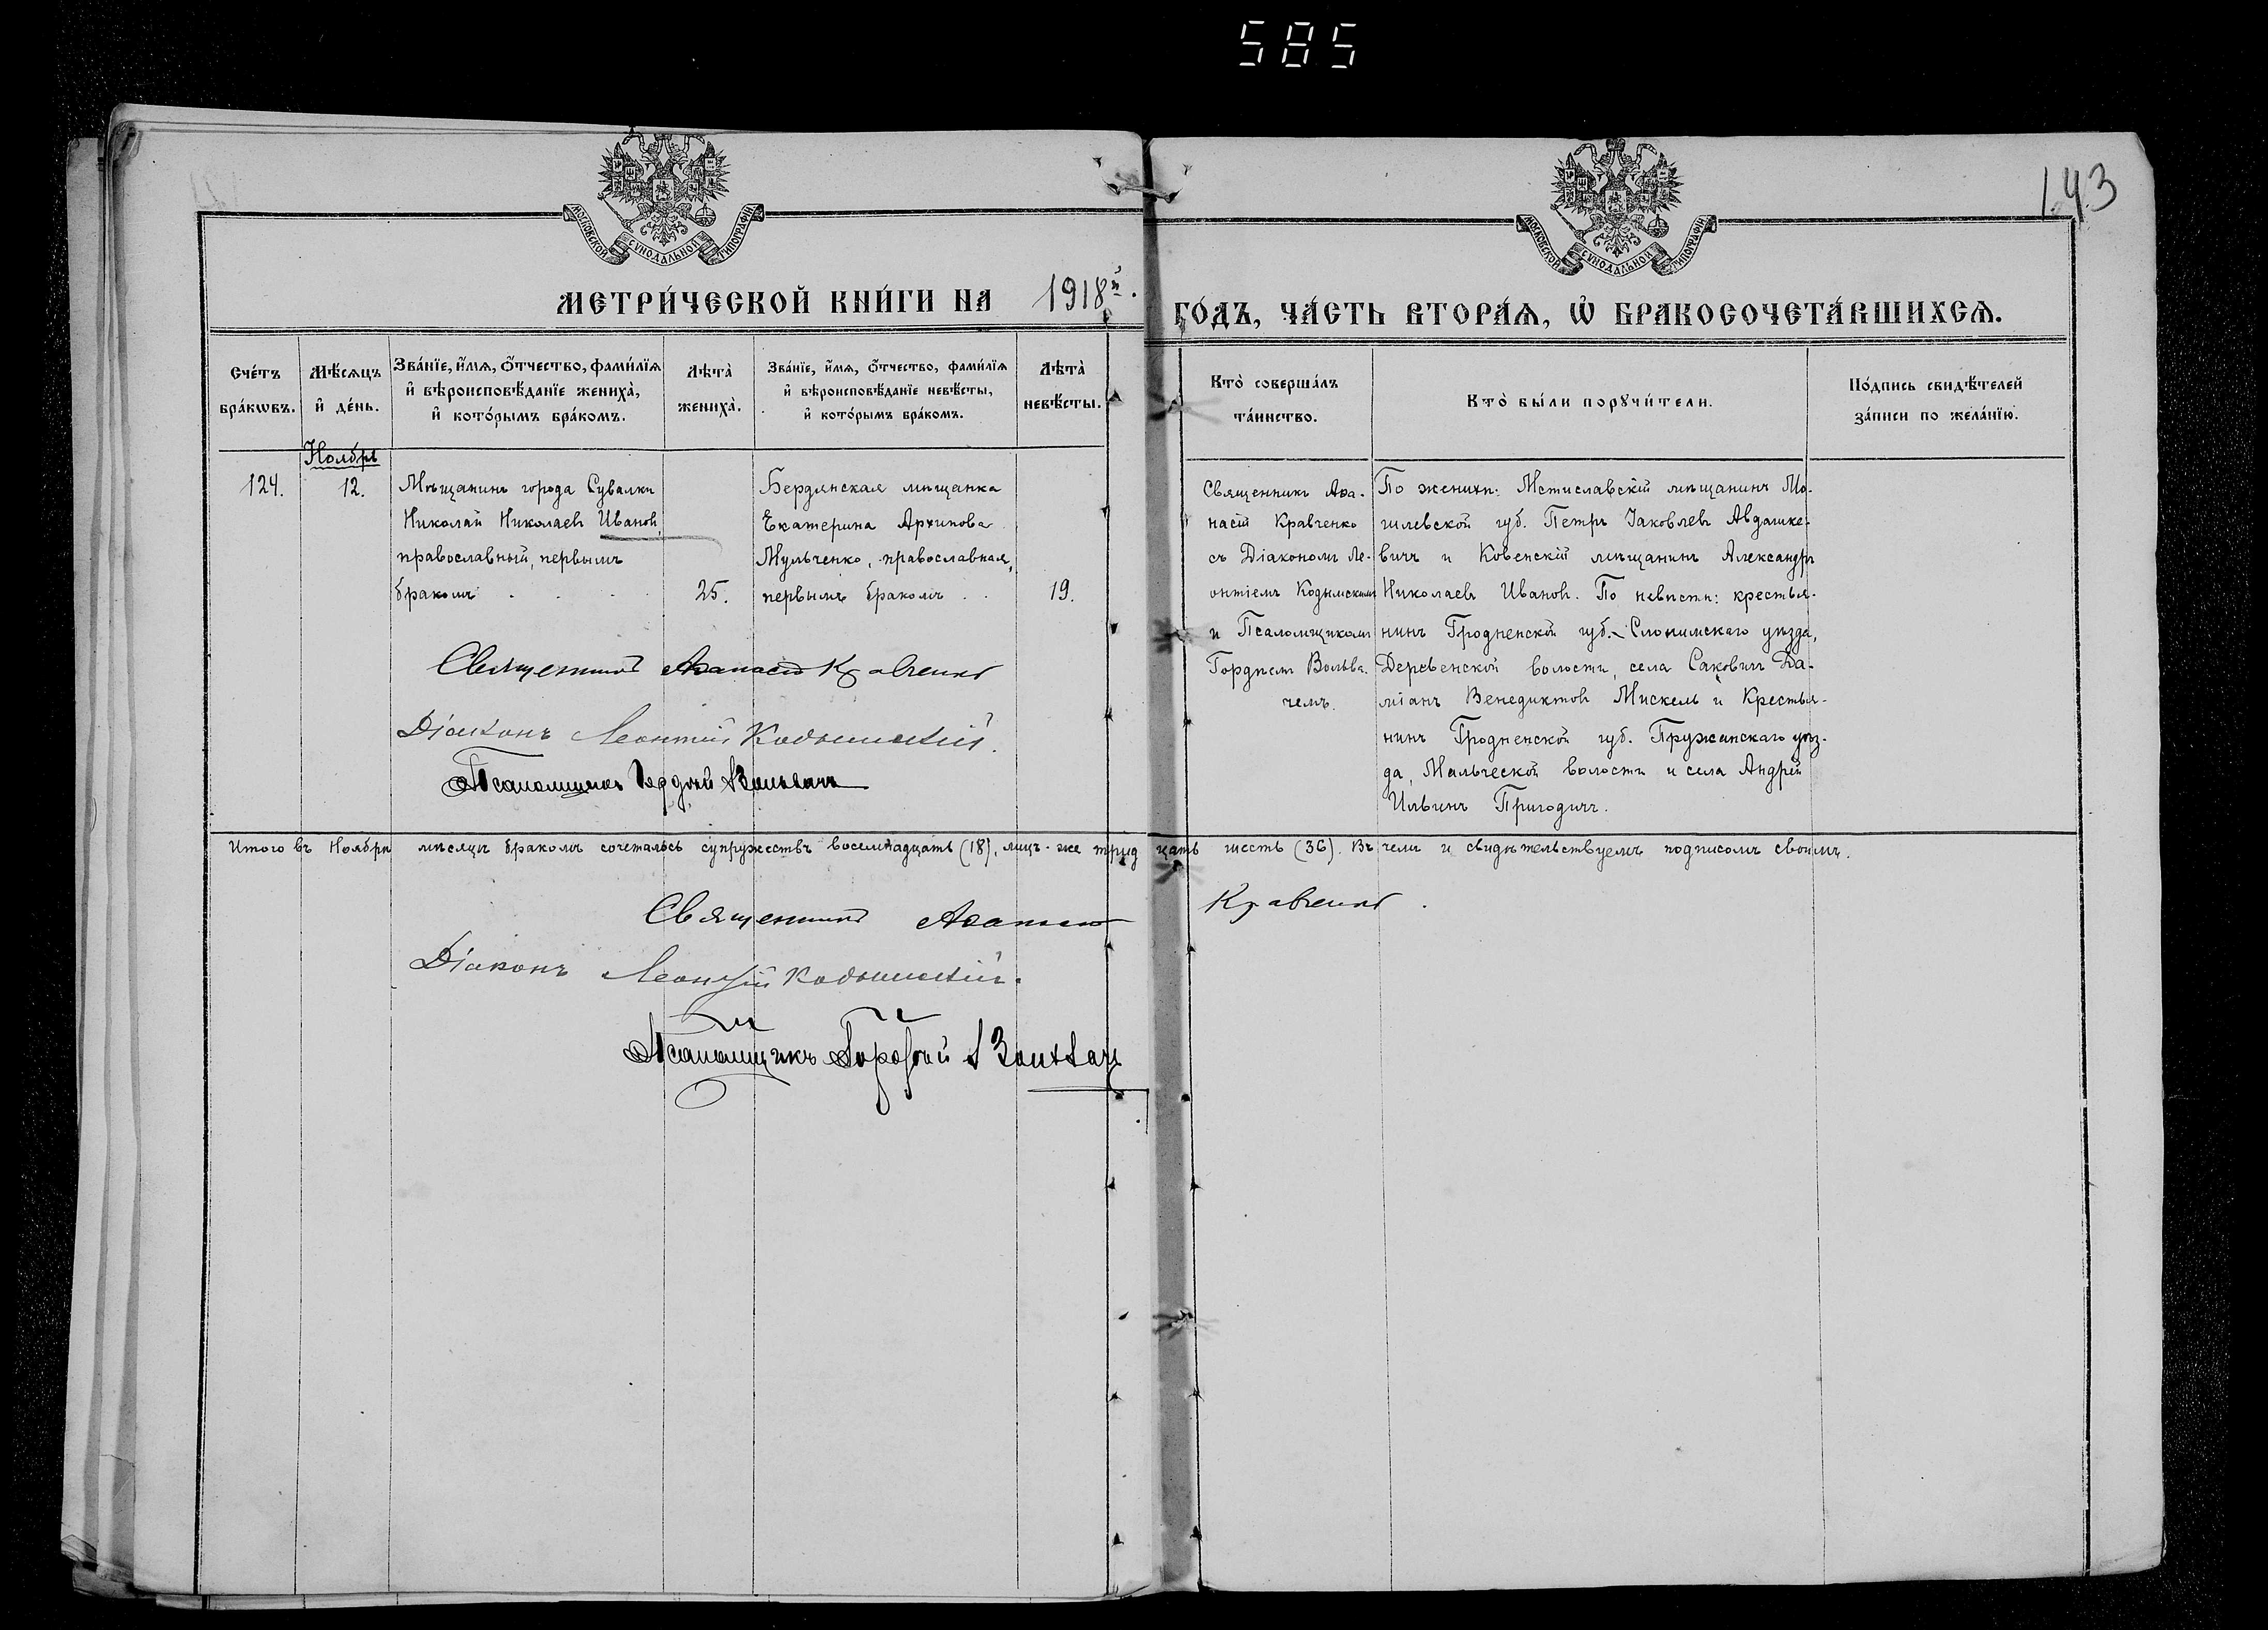 585
143
МОСКОВСКОЙ СѴНОДАЛЬНОЙ ТИПОГРАФІИ
МОСКОВСКОЙ СѴНОДАЛЬНОЙ ТИПОГРАФІИ
МЕТРИ́ЧЕСКОЙ КНИ́ГИ НА 1918й. ГО́ДЪ, ЧА́СТЬ ВТОРА́Ѧ, Ѡ҆ БРАКОСОЧЕТА́ВШИХСѦ.
Сче́тъ бра́кѡвъ.
Мѣ́сѧцъ и҆ де́нь.
Зва́нїе, и҆́мѧ, ѻ҆́тчество, фами́лїѧ и҆ вѣроисповѣ́данїе жениха̀, и҆ кото́рымъ бра́комъ.
Лѣта̀ жениха̀.
Зва́нїе, и҆́мѧ, ѻ҆́тчество, фами́лїѧ и҆ вѣроисповѣ́данїе невѣ́сты, и҆ кото́рымъ бра́комъ.
Лѣта̀ невѣ́сты.
Кто̀ соверша́лъ та́инство.
Кто̀ бы́ли порꙋчи́тели.
По́дпись свидѣ́телей за́писи по жела́нїю.
Ноябрь
124.
12.
Мѣщанинъ города Сувалки
Николай Николаевъ Ивановъ
православный, первымъ
бракомъ . . . .
25.
Бердянская мѣщанка
Екатерина Архипова
Мульченко, православная,
первымъ бракомъ . .
19.
Священникъ Аѳа-
насій Кравченко
съ Діакономъ Ле-
онтіемъ Кодымскимъ
и Псаломщикомъ
Гордѣемъ Вольва-
чемъ.
По женихѣ: Мстиславскій мѣщанинъ Мо-
гилевской губ. Петръ Іаковлевъ Авдашке-
вичъ и Ковенскій мѣщанинъ Александръ
Николаевъ Ивановъ. По невѣстѣ: крестья-
нинъ Гродненской губ. Слонимскаго уѣзда,
Деревенской волости, села Саковичъ Да-
міанъ Венедиктовъ Мискель и Крестья-
нинъ Гродненской губ. Пружанскаго уѣз-
да, Мальческой волости и села Андрей
Ильинъ Пригодичъ.
Священникъ Аѳанасій Кравченко
Діаконъ Леонтій Кодымскій.
Псаломщикъ Гордѣй Вольвачъ
Итого въ Ноябрѣ мѣсяцѣ бракомъ сочеталось супружествъ восемнадцать (18), лицъ-же тридцать шесть (36). Въ чемъ и свидѣтельствуемъ подписомъ своимъ.
Священникъ Аѳанасій Кравченко.
Діаконъ Леонтій Кодымскій.
Псаломщикъ Гордѣй Вольвачъ